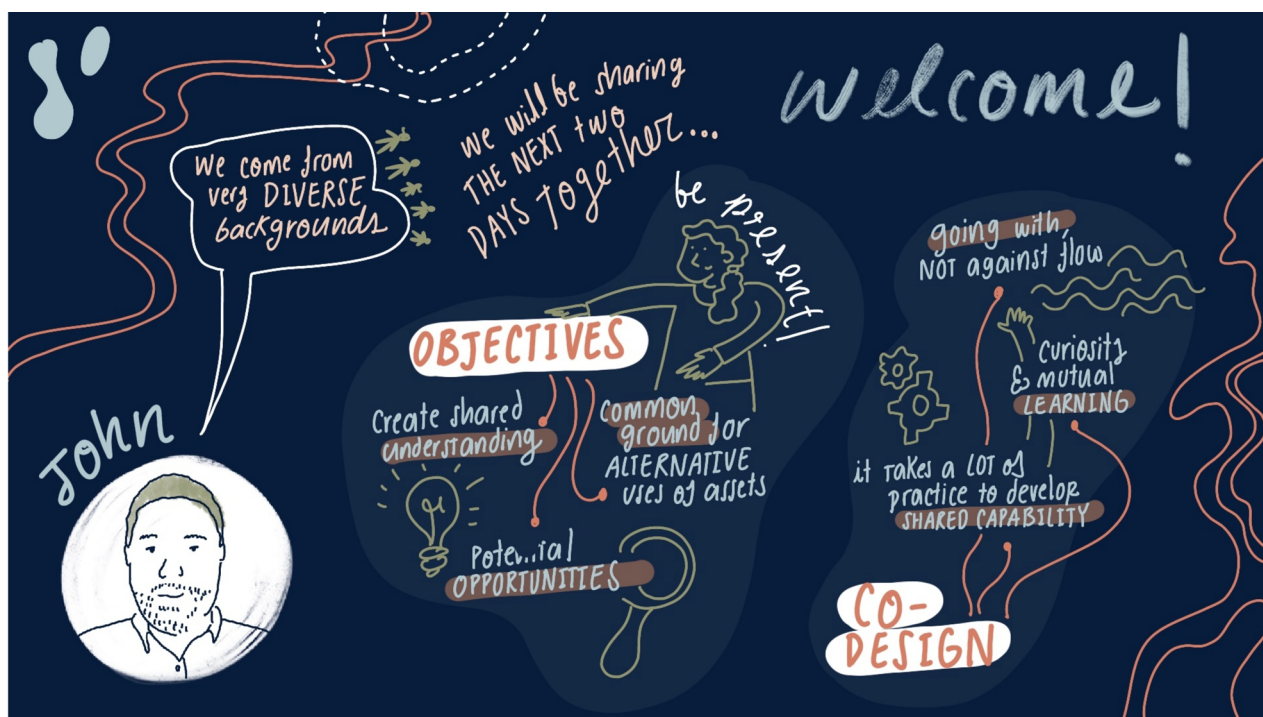 welcome!
We come from
very DIVERSE
backgrounds
John
we will be sharing
THE NEXT two
DAYS together...
be present!
OBJECTIVES
Create shared
understanding
Common
ground for
ALTERNATIVE
uses of assets
OPPORTUNITIES
going with,
NOT against flow
curiosity
& mutual
LEARNING
it takes a LOT of
practice to develop
SHARED CAPABILITY
CO-
DESIGN